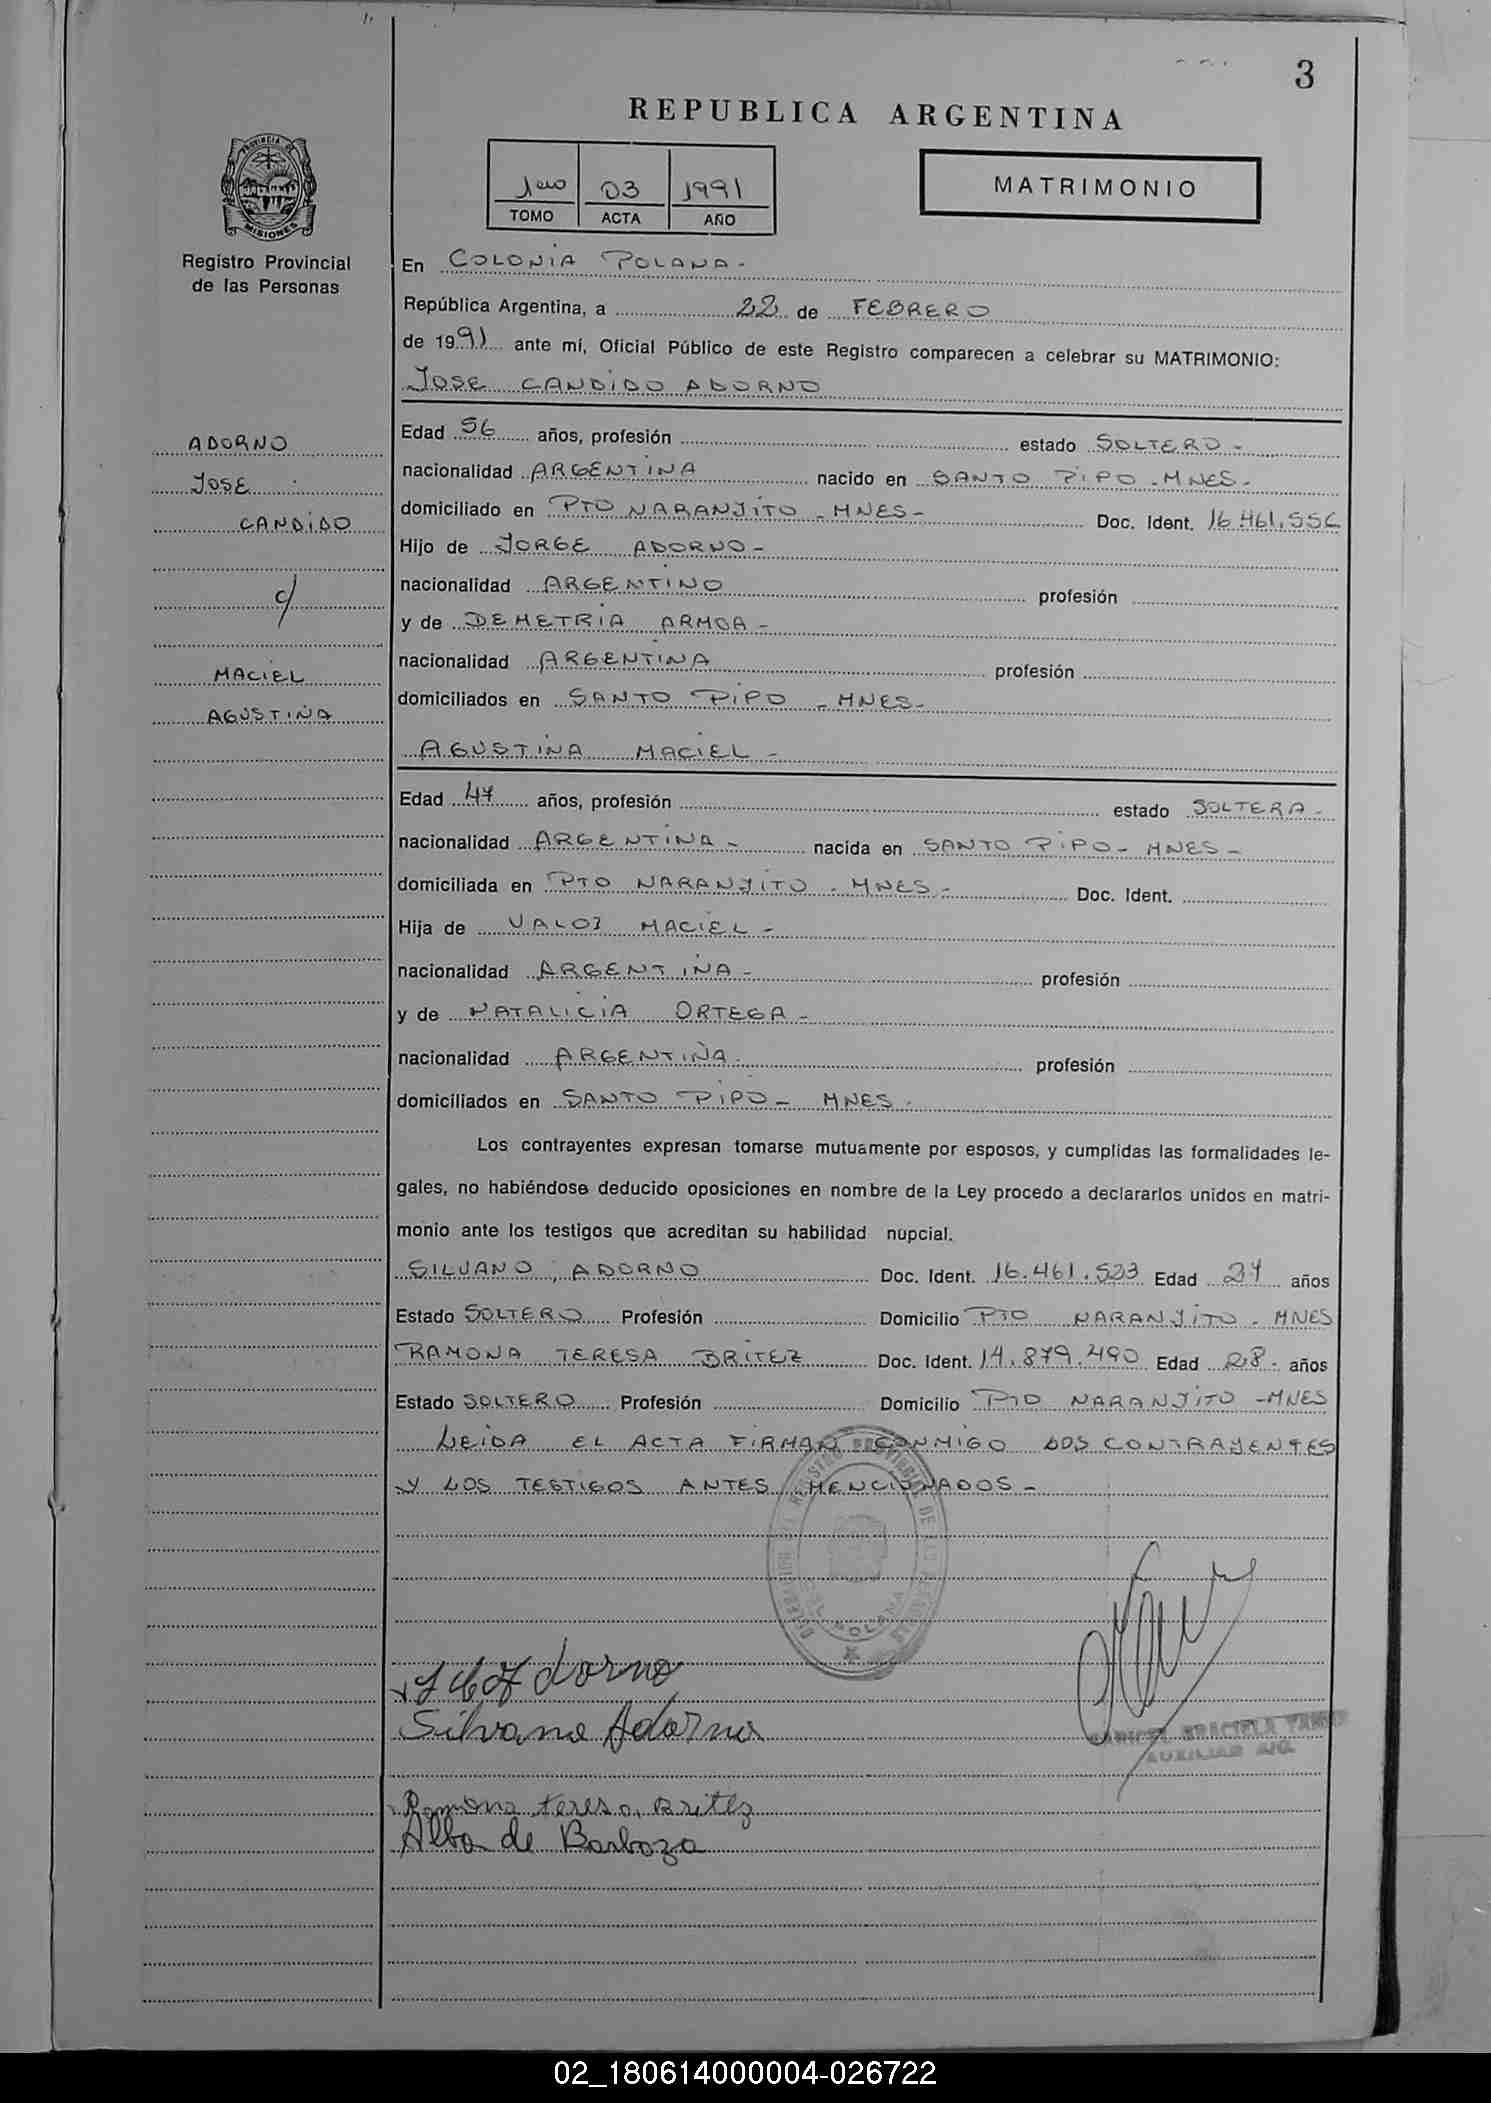 3
REPUBLICA ARGENTINA
1ero 03 1991
TOMO ACTA AÑO
MATRIMONIO
PROVINCIA DE MISIONES
Registro Provincial
de las Personas
En COLONIA POLANA-
República Argentina, a 22 de FEBRERO
de 1991 ante mí, Oficial Público de este Registro comparecen a celebrar su MATRIMONIO:
JOSE CANDIDO ADORNO
ADORNO
JOSE
CANDIDO
c/
MACIEL
AGUSTINA
Edad 56 años, profesión estado SOLTERO-
nacionalidad ARGENTINA nacido en SANTO PIPO-MNES-
domiciliado en PTO NARANJITO-MNES- Doc. Ident. 16.461.556
Hijo de JORGE ADORNO-
nacionalidad ARGENTINO profesión
y de DEMETRIA ARMOA-
nacionalidad ARGENTINA profesión
domiciliados en SANTO PIPO-MNES-
AGUSTINA MACIEL-
Edad 47 años, profesión estado SOLTERA-
nacionalidad ARGENTINA- nacida en SANTO PIPO-MNES-
domiciliada en PTO NARANJITO-MNES- Doc. Ident.
Hija de VALOI MACIEL-
nacionalidad ARGENTINA- profesión
y de NATALICIA ORTEGA-
nacionalidad ARGENTINA- profesión
domiciliados en SANTO PIPO-MNES-
Los contrayentes expresan tomarse mutuamente por esposos, y cumplidas las formalidades le-
gales, no habiéndose deducido oposiciones en nombre de la Ley procedo a declararlos unidos en matri-
monio ante los testigos que acreditan su habilidad nupcial.
SILVANO ADORNO Doc. Ident. 16.461.523 Edad 27 años
Estado SOLTERO Profesión Domicilio PTO NARANJITO-MNES
RAMONA TERESA BRITEZ Doc. Ident. 14.879.490 Edad 28- años
Estado SOLTERO Profesión Domicilio PTO NARANJITO-MNES
LEIDA EL ACTA FIRMAN CONMIGO LOS CONTRAYENTES
Y LOS TESTIGOS ANTES MENCIONADOS-
POLANA
Adorno
Silvano Adorno
GRACIELA
AUXILIAR
Ramona teresa Britez
Alba de Barboza
02_180614000004-026722